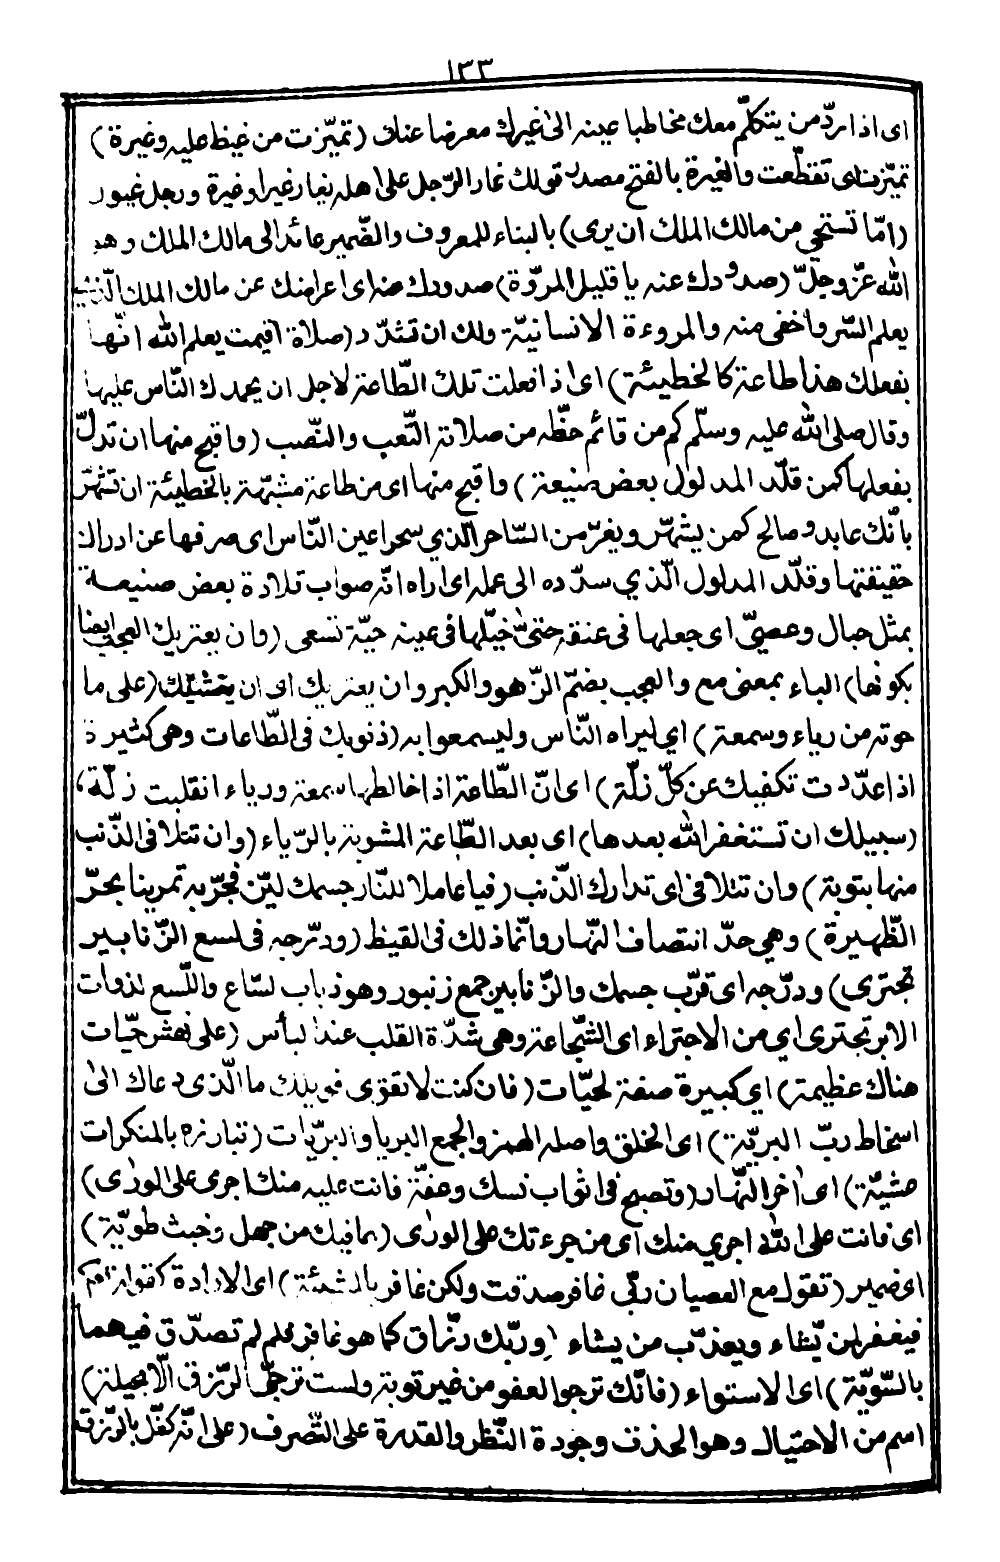 ١٣٣
اى اذا ردّ من يتكلّم معك مخاطبا عينه الى غيرك معرضا عنك (تميّزت من غيظ عليه وغيرة)
تميّزت اى تقطّعت والغيرة بالفتح مصدر قولك غار الرّجل على اهله يغار غيرا وغيرة ورجل غيور
(امّا تستحي من مالك الملك ان يرى) بالبناء للمعروف والضّمير عائد الى مالك الملك وهو
الله عزّ وجلّ (صدودك عنه يا قليل المروّة) صدودك عنه اى اعراضك عن مالك الملك الّذي
يعلم السّرّ واخفى منه والمروءة الانسانيّة ولك ان تشدّد (صلاة اقيمت يعلم الله انّها
بفعلك هذا طاعة كالخطيئة) اى اذا فعلت تلك الطّاعة لاجل ان يحمدك النّاس عليها
وقال صلى الله عليه وسلّم كم من قائم حظّه من صلاته التّعب والنّصب (واقبح منها ان تدلّ
بفعلها كمن قلّد المدلول بعض صنيعة) واقبح منها اى من طاعة مشبّهة بالخطيئة ان تشهّر
بانّك عابد وصالح كمن يشهّر ويغرّ من السّاحر الّذي سحر اعين النّاس اى صرفها عن ادراك
حقيقتها وقلّد المدلول الّذي سدّده الى عمله اى اراه انّه صواب تلادة بعض صنيعة
بمثل حبال وعصيّ اى جعلها فى عنقه حتىّ خيّلها فى عينه حيّة تسعى (وان يعتريك العجب ايضا
بكونها) الباء بمعنى مع والعجب بضمّ الزّهو والكبر وان يعتريك اى ان يغشيك (على ما
حوته من رياء وسمعة) اي ليراه النّاس وليسمعوا به (ذنوبك فى الطّاعات وهى كثيرة
اذا عدّدت تكفيك عن كلّ زلّة) اى انّ الطّاعة اذا خالطها سمعة ورياء انقلبت زلّة،
(سبيلك ان تستغفر الله بعدها) اى بعد الطّاعة المشوبة بالرّياء (وان تتلافى الذّنب
منها بتوبة) وان تتلافى اى تدارك الذّنب (فيا عاملا للنّار جسمك ليّن فجرّبه تمرينا بحرّ
الظّهيرة) وهي حدّ انتصاف النّهار وانّما ذلك فى القيظ (ودرّجه فى لسع الزّنابير
تجترى) ودرّجه اى قرّب جسمك والزّنابير جمع زنبور وهو ذباب لسّاع واللّسع لذوات
الابر تجترى اي من الاجتراء اى الشّجاعة وهى شدّة القلب عند البأس (على نهش حيّات
هناك عظيمة) اي كبيرة صفة لحيّات (فان كنت لا تقوى فويلك ما الّذى دعاك الى
اسخاط ربّ البريّة) اى الخلق واصله الهمز والجمع البرايا والبريّات (تبارزه بالمنكرات
عشيّة) اى آخر النّهار (وتصبح فى اثواب نسك وعفّة فانت عليه منك اجرى على الورى)
اى فانت على الله اجرى منك اى من جرءتك على الورى (بما فيك من جهل وخبث طويّة)
اى ضمير (تقول مع العصيان ربّى غافر صدقت ولكن غافر بالمشيئة) اى الارادة كقوله تعالى
فيغفر لمن يشاء ويعذّب من يشاء (وربّك رزّاق كما هو غافر فلم لم تصدّق فيهما
بالسّويّة) اى الاستواء (فانّك ترجوا لعفو من غير توبة ولست ترجّى الرّزق الّا بحيلة)
اسم من الاحتيال وهو الحذق وجودة النّظر والقدرة على التّصرف (على انّه كفّل بالرّزق